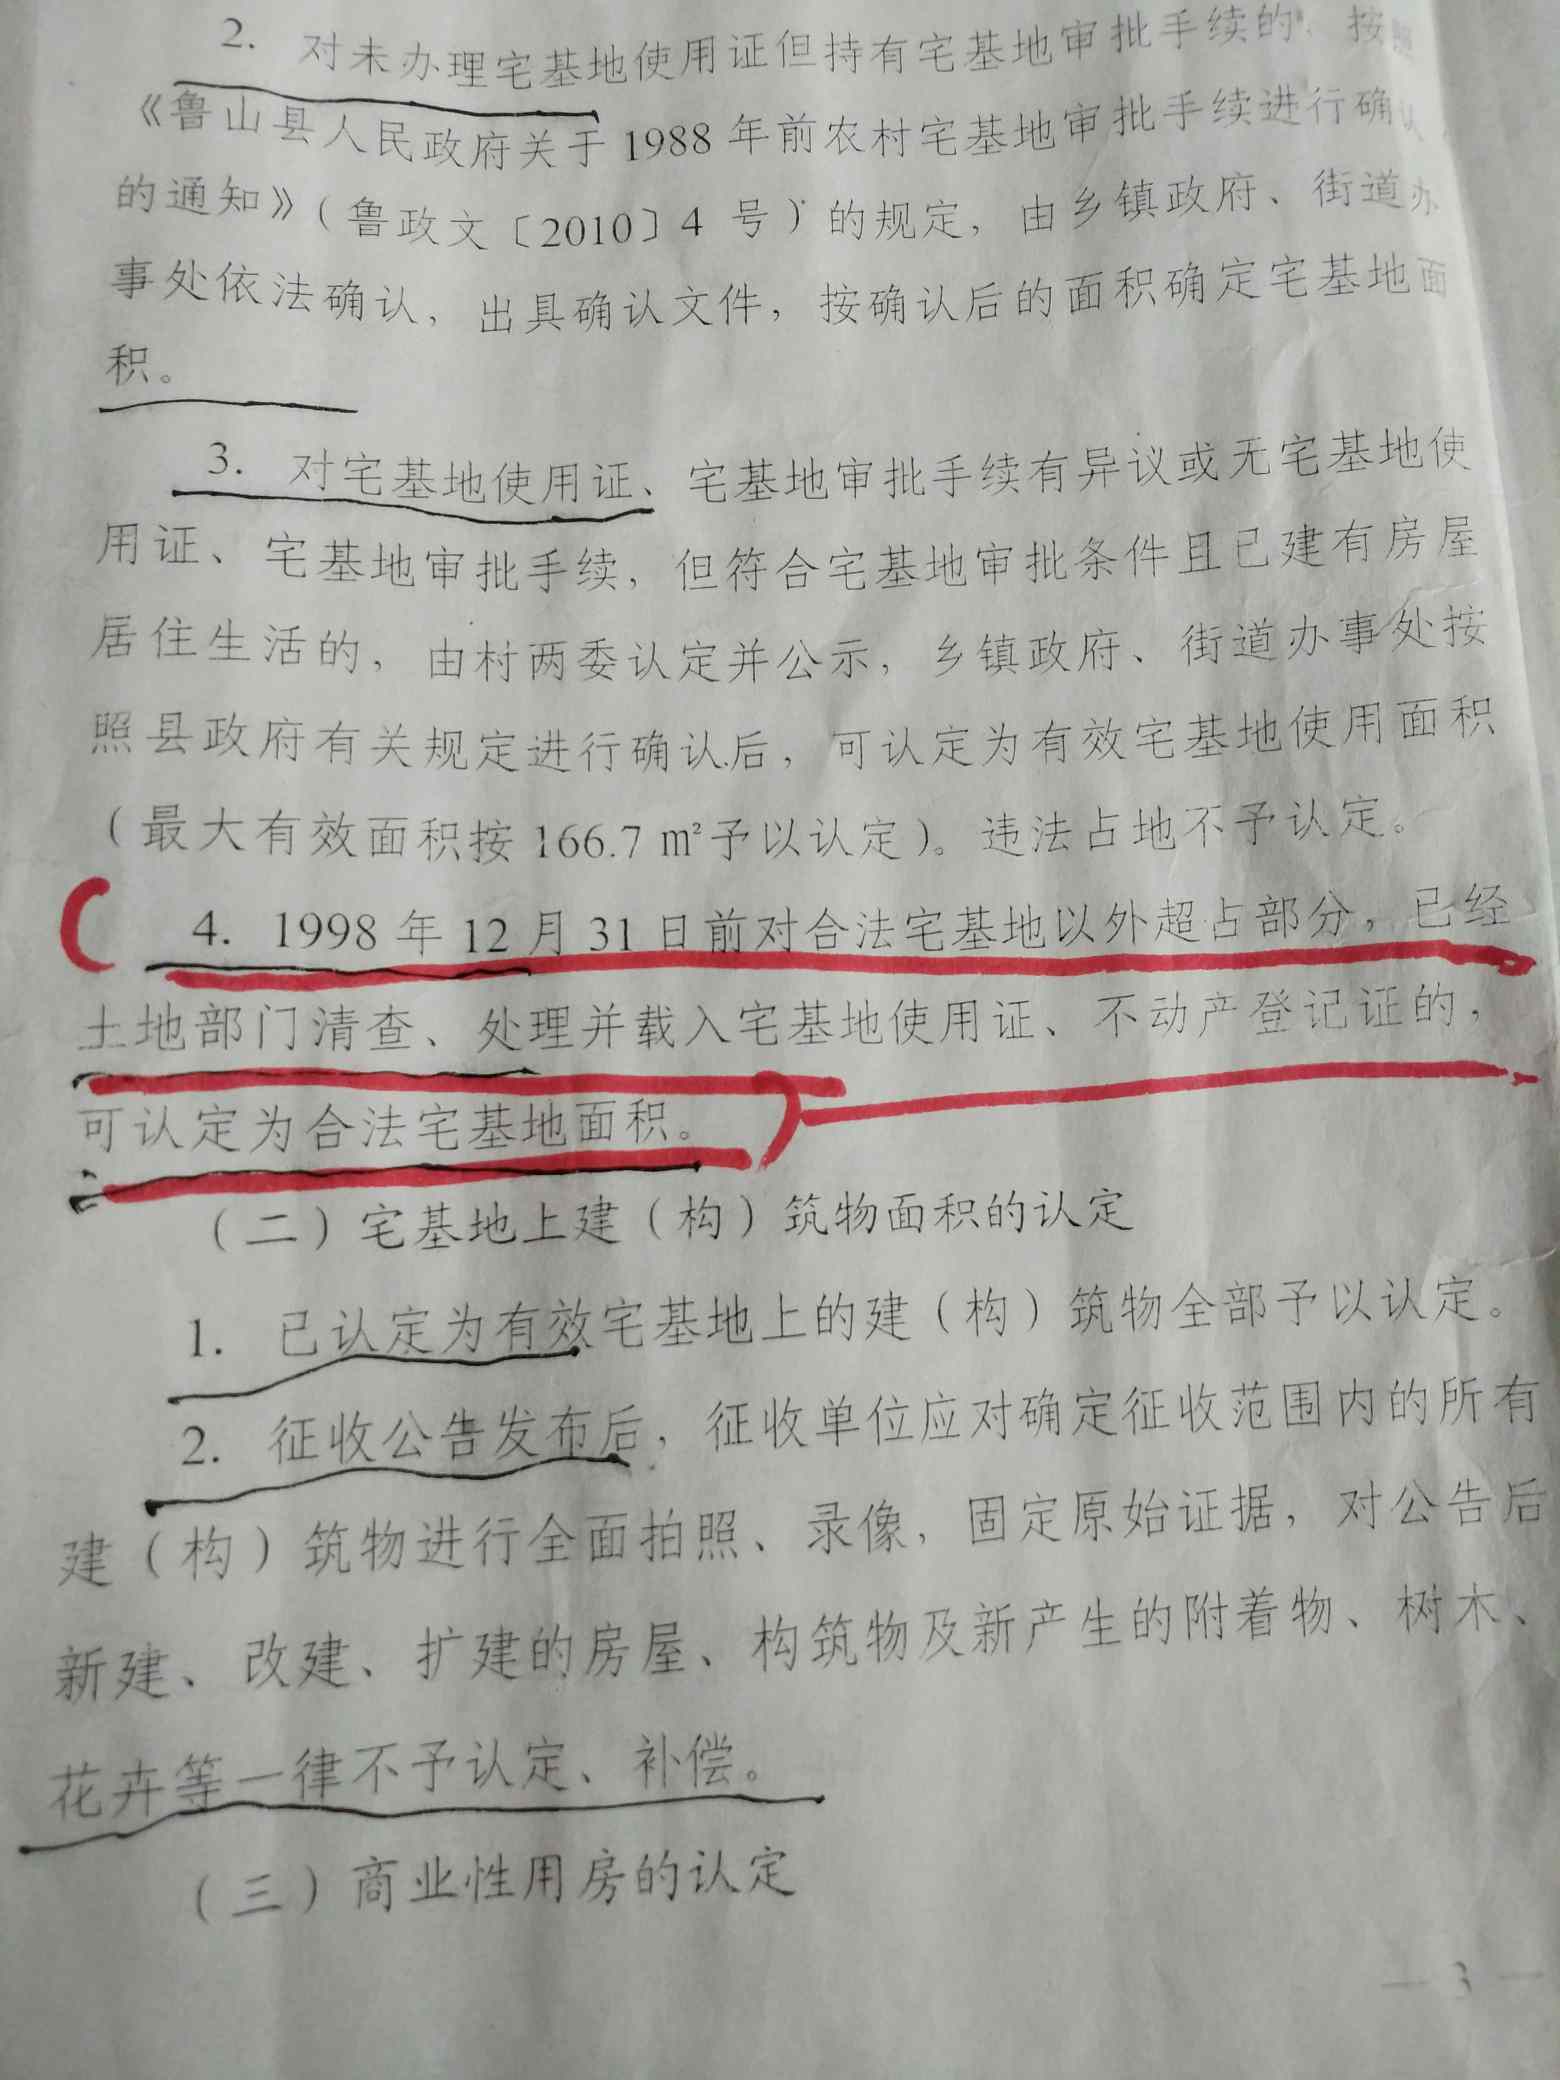 2. 对未办理宅基地使用证但持有宅基地审批手续的，按
《鲁山县人民政府关于1988年前农村宅基地审批手续进行确认
的通知》（鲁政文〔2010〕4 号）的规定，由乡镇政府、街道办
事处依法确认，出具确认文件，按确认后的面积确定宅基地面
积。
3. 对宅基地使用证、宅基地审批手续有异议或无宅基地使
用证、宅基地审批手续，但符合宅基地审批条件且已建有房屋
居住生活的，由村两委认定并公示，乡镇政府、街道办事处按
照县政府有关规定进行确认后，可认定为有效宅基地使用面积
（最大有效面积按166.7㎡予以认定）。违法占地不予认定。
4. 1998年12月31日前对合法宅基地以外超占部分，已经
土地部门清查、处理并载入宅基地使用证、不动产登记证的，
可认定为合法宅基地面积。
（二）宅基地上建（构）筑物面积的认定
1. 已认定为有效宅基地上的建（构）筑物全部予以认定。
2. 征收公告发布后，征收单位应对确定征收范围内的所有
建（构）筑物进行全面拍照、录像，固定原始证据，对公告后
新建、改建、扩建的房屋、构筑物及新产生的附着物、树木、
花卉等一律不予认定、补偿。
（三）商业性用房的认定
— 3 —